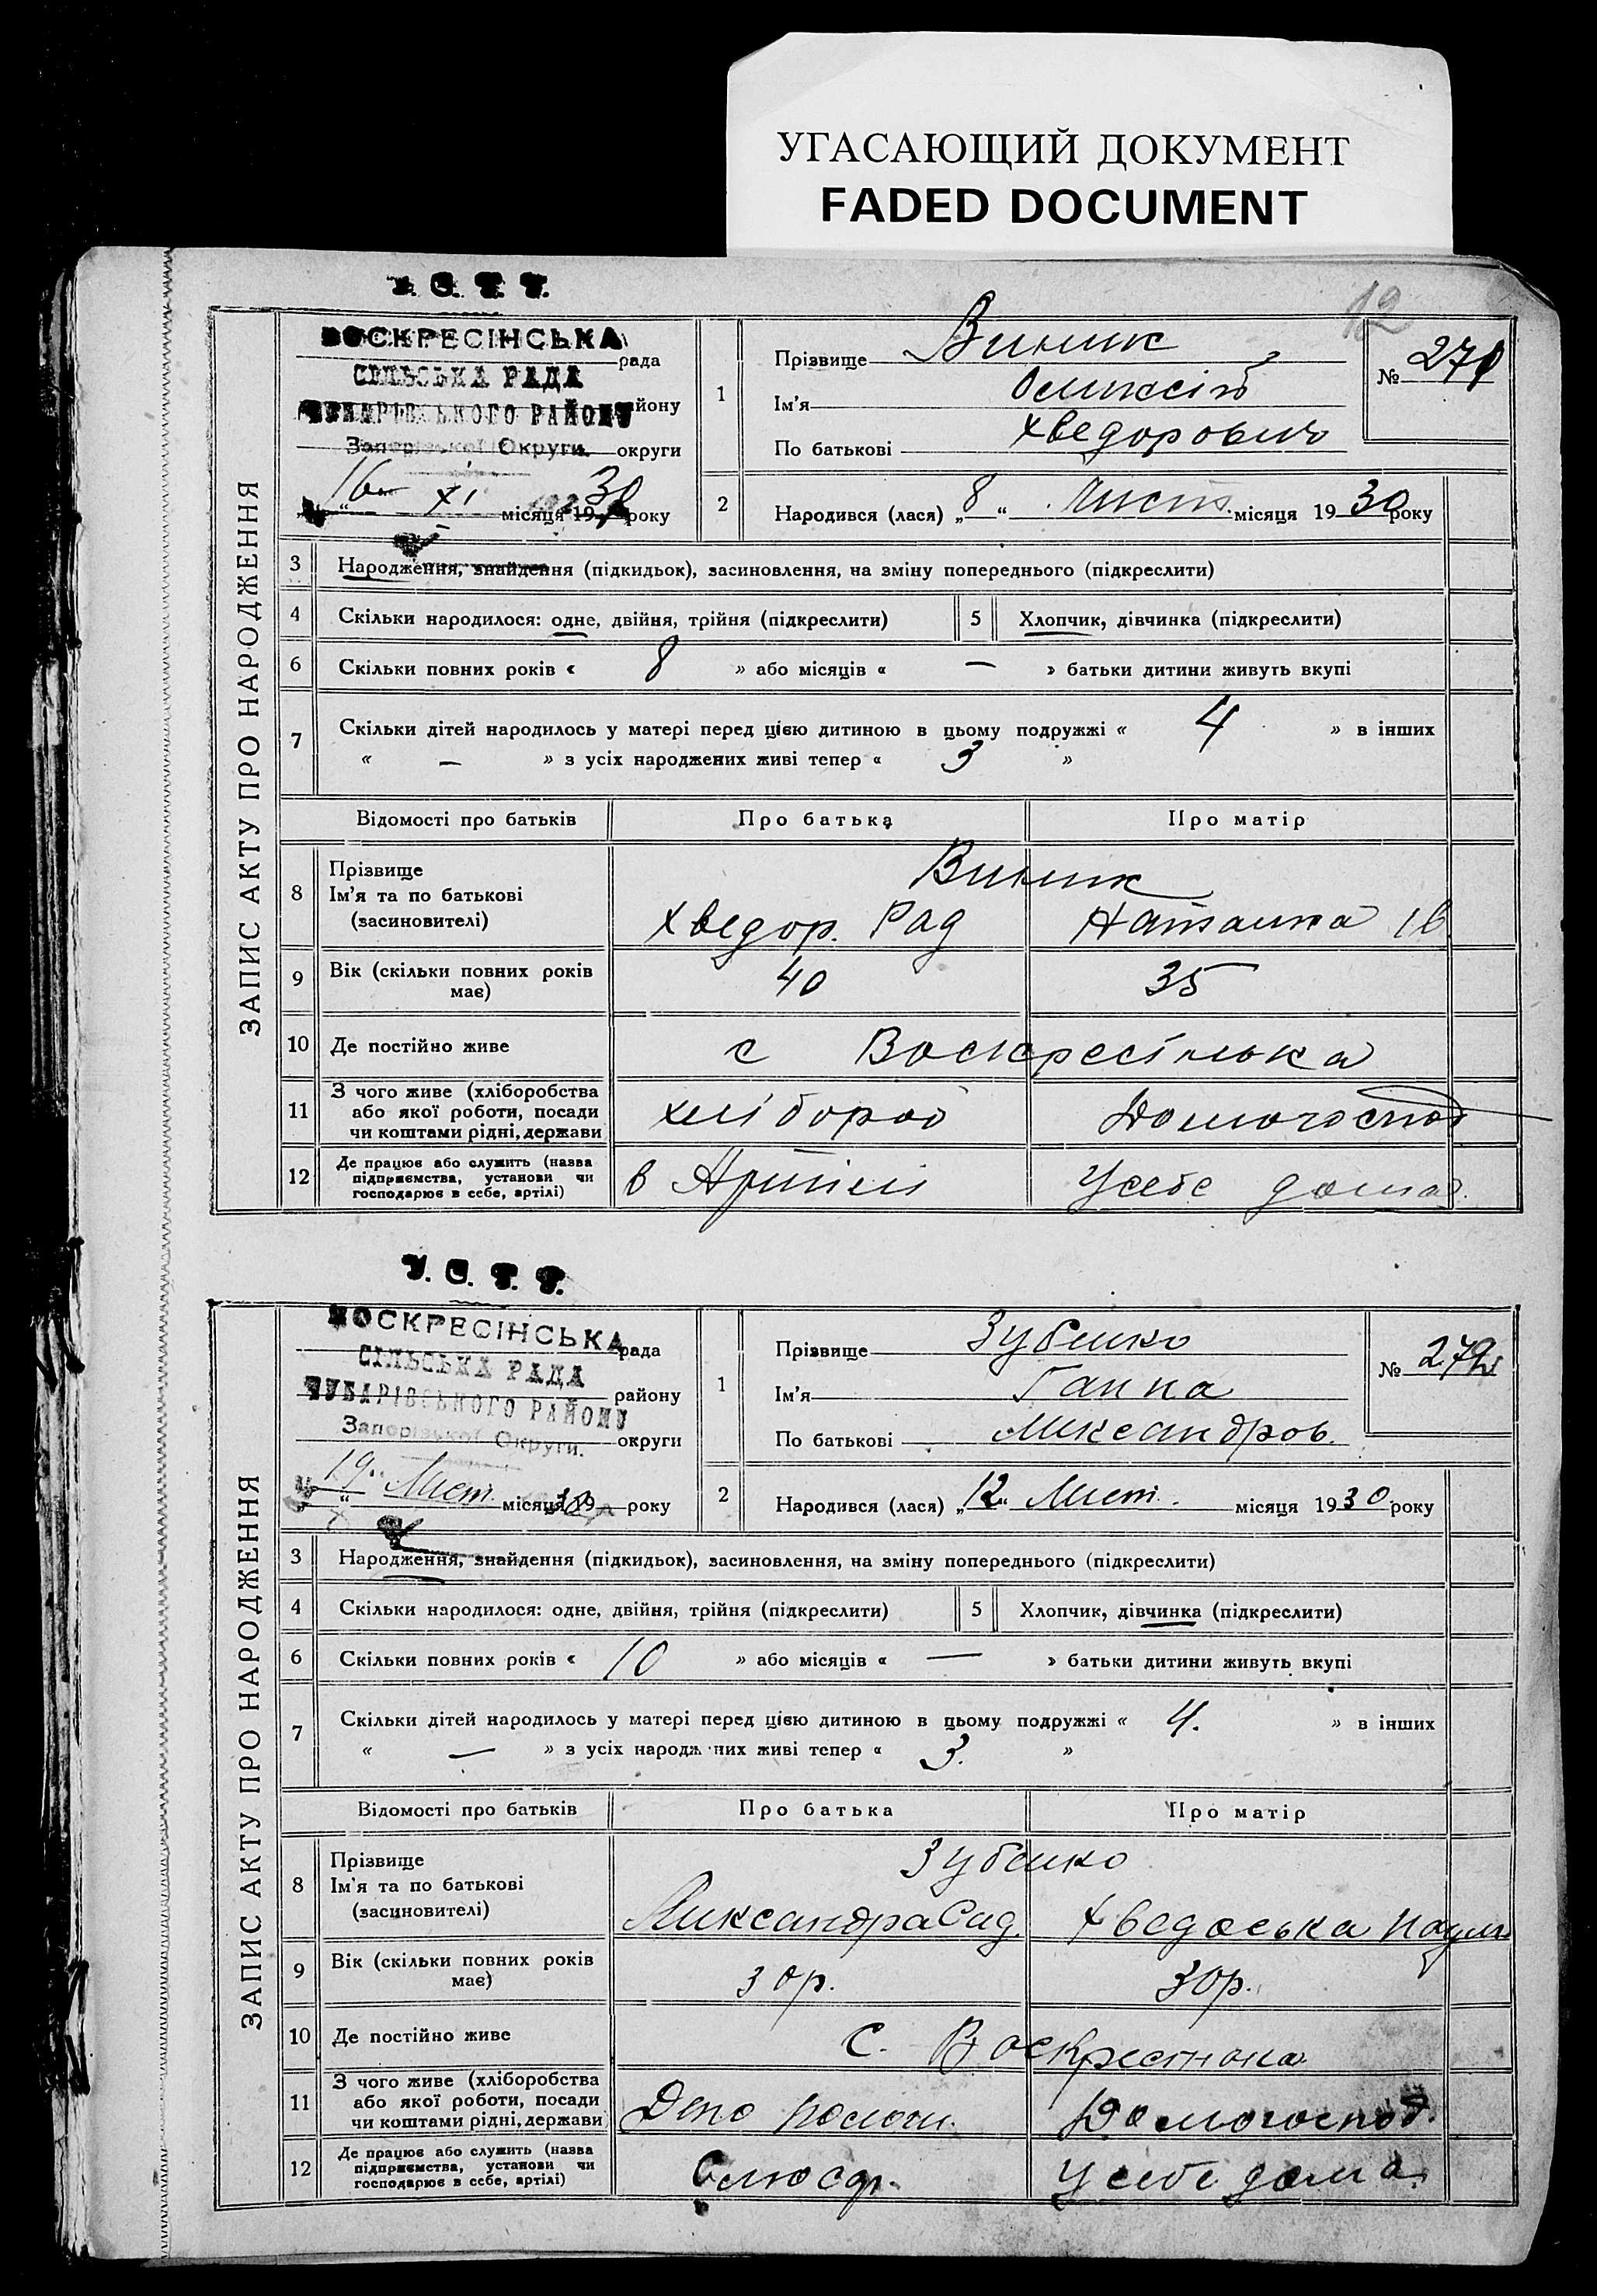 УГАСАЮЩИЙ ДОКУМЕНТ
FADED DOCUMENT
У. С. Р. Р.
12
ЗАПИС АКТУ ПРО НАРОДЖЕННЯ
ВОСКРЕСІНСЬКА рада
СІЛЬСЬКА РАДА
ЧУБАРІВСЬКОГО РАЙОНУ району
Запорізької Округи. округи
16 XI місяця 1930 року
1
Прізвище Виник
Ім'я
По батькові Хведорович
№ 271
2 Народився (лася) „8“ Лист. місяця 1930 року
3 Народження, знайдення (підкидьок), засиновлення, на зміну попереднього (підкреслити)
4 Скільки народилося: одне, двійня, трійня (підкреслити) 5 Хлопчик, дівчинка (підкреслити)
6 Скільки повних років « 8 » або місяців « — » батьки дитини живуть вкупі
7 Скільки дітей народилось у матері перед цією дитиною в цьому подружжі « 4 » в інших
« — » з усіх народжених живі тепер « 3 »
Відомості про батьків Про батька Про матір
8 Прізвище
Ім'я та по батькові
(засиновителі)
Виник
Хведор. Рад Наталка Ів.
9 Вік (скільки повних років має) 40 35
10 Де постійно живе с Воскресінська
11 З чого живе (хліборобства
або якої роботи, посади
чи коштами рідні, держави
хлібороб Домогоспод
12 Де працює або служить (назва
підприємства, установи чи
господарює в себе, артілі)
в Артілі У себе дома.
У. С. Р. Р.
ЗАПИС АКТУ ПРО НАРОДЖЕННЯ
ВОСКРЕСІНСЬКА рада
СІЛЬСЬКА РАДА
ЧУБАРІВСЬКОГО РАЙОНУ району
Запорізької Округи. округи
19 Лист. місяця 1930 року
1
Прізвище Зубенко
Ім'я Ганна
По батькові Лександров.
№ 272
2 Народився (лася) „12“ Лист. місяця 1930 року
3 Народження, знайдення (підкидьок), засиновлення, на зміну попереднього (підкреслити)
4 Скільки народилося: одне, двійня, трійня (підкреслити) 5 Хлопчик, дівчинка (підкреслити)
6 Скільки повних років « 10 » або місяців « — » батьки дитини живуть вкупі
7 Скільки дітей народилось у матері перед цією дитиною в цьому подружжі « 4. » в інших
« — » з усіх народжених живі тепер « 3. »
Відомості про батьків Про батька Про матір
8 Прізвище
Ім'я та по батькові
(засиновителі)
Зубенко
Ликсандра Сид. Хведоська
9 Вік (скільки повних років має) 30р. 30р.
10 Де постійно живе С. Воскресінока
11 З чого живе (хліборобства
або якої роботи, посади
чи коштами рідні, держави
Депо Домогоспод.
12 Де працює або служить (назва
підприємства, установи чи
господарює в себе, артілі)
Слюсар. У себе дома.